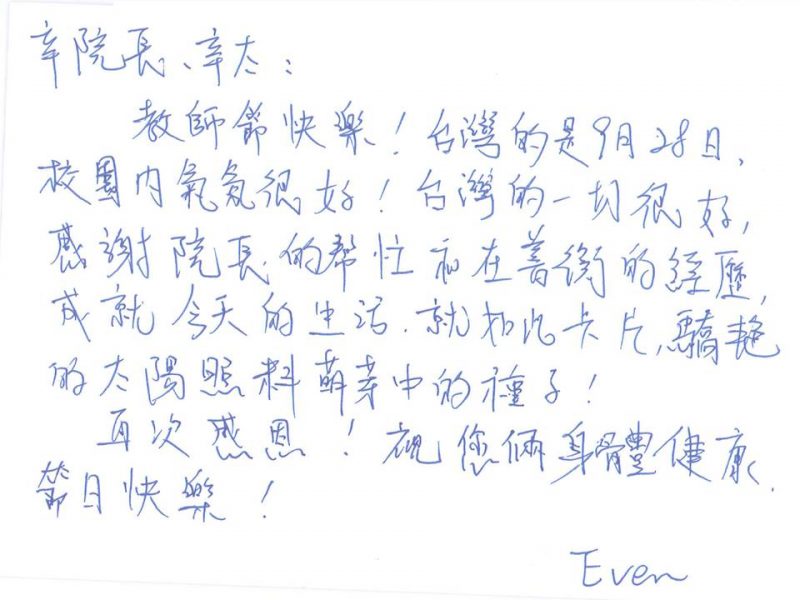 辛院長、辛太：
教師節快樂！台灣的是9月28日，
校園內氣氛很好！台灣的一切很好，
感謝院長的幫忙和在善衡的經歷，
成就今天的生活．就如此卡片，驕艷
的太陽照料萌芽中的種子！
再次感恩！祝您倆身體健康，
節日快樂！
Even